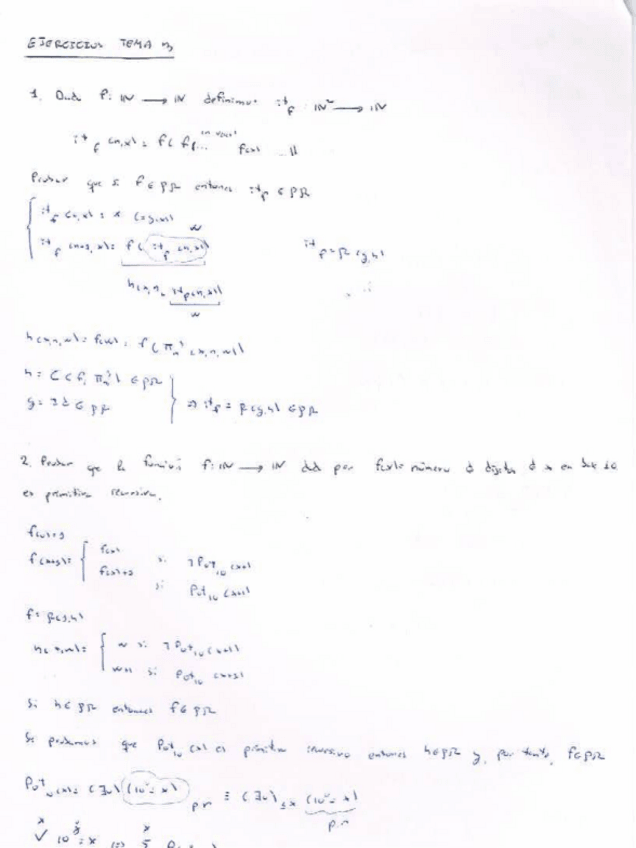 EJERCICIOS TEMA 3
1. Dada f: ℕ → ℕ definimos it_f : ℕ² → ℕ
it_f (n,x) = f( f(... f(x) ...))
Probar que si f ∈ PR entonces it_f ∈ PR
it_f (0,x) = x (=g(x))
it_f (n+1, x) = f( it_f (n,x))
it_f = R(g,h)
h(x,n, it_f(n,x))
w
h(x,n,w) = f(w) = f( π (x,n,w))
h = C(f, π) ∈ PR
g = Id ∈ PR
⇒ it_f = R(g,h) ∈ PR
2. Probar que la función f: ℕ → ℕ dada por f(x) = número de dígitos de x en base 10
es primitiva recursiva.
f(0) = 1
f(x+1) = f(x) si ¬Pot₁₀(x+1)
f(x)+1 si Pot₁₀(x+1)
f = R(1,h)
h(x,w) = w si ¬Pot₁₀(x+1)
w+1 si Pot₁₀(x+1)
Si h ∈ PR entonces f ∈ PR
Si probamos que Pot₁₀(x) es primitivo recursivo entonces h ∈ PR y, por tanto, f ∈ PR
Pot₁₀(x) ≡ (∃u) (10ᵘ = x) ≡ (∃u)≤x (10ᵘ = x)
p.r
p.r